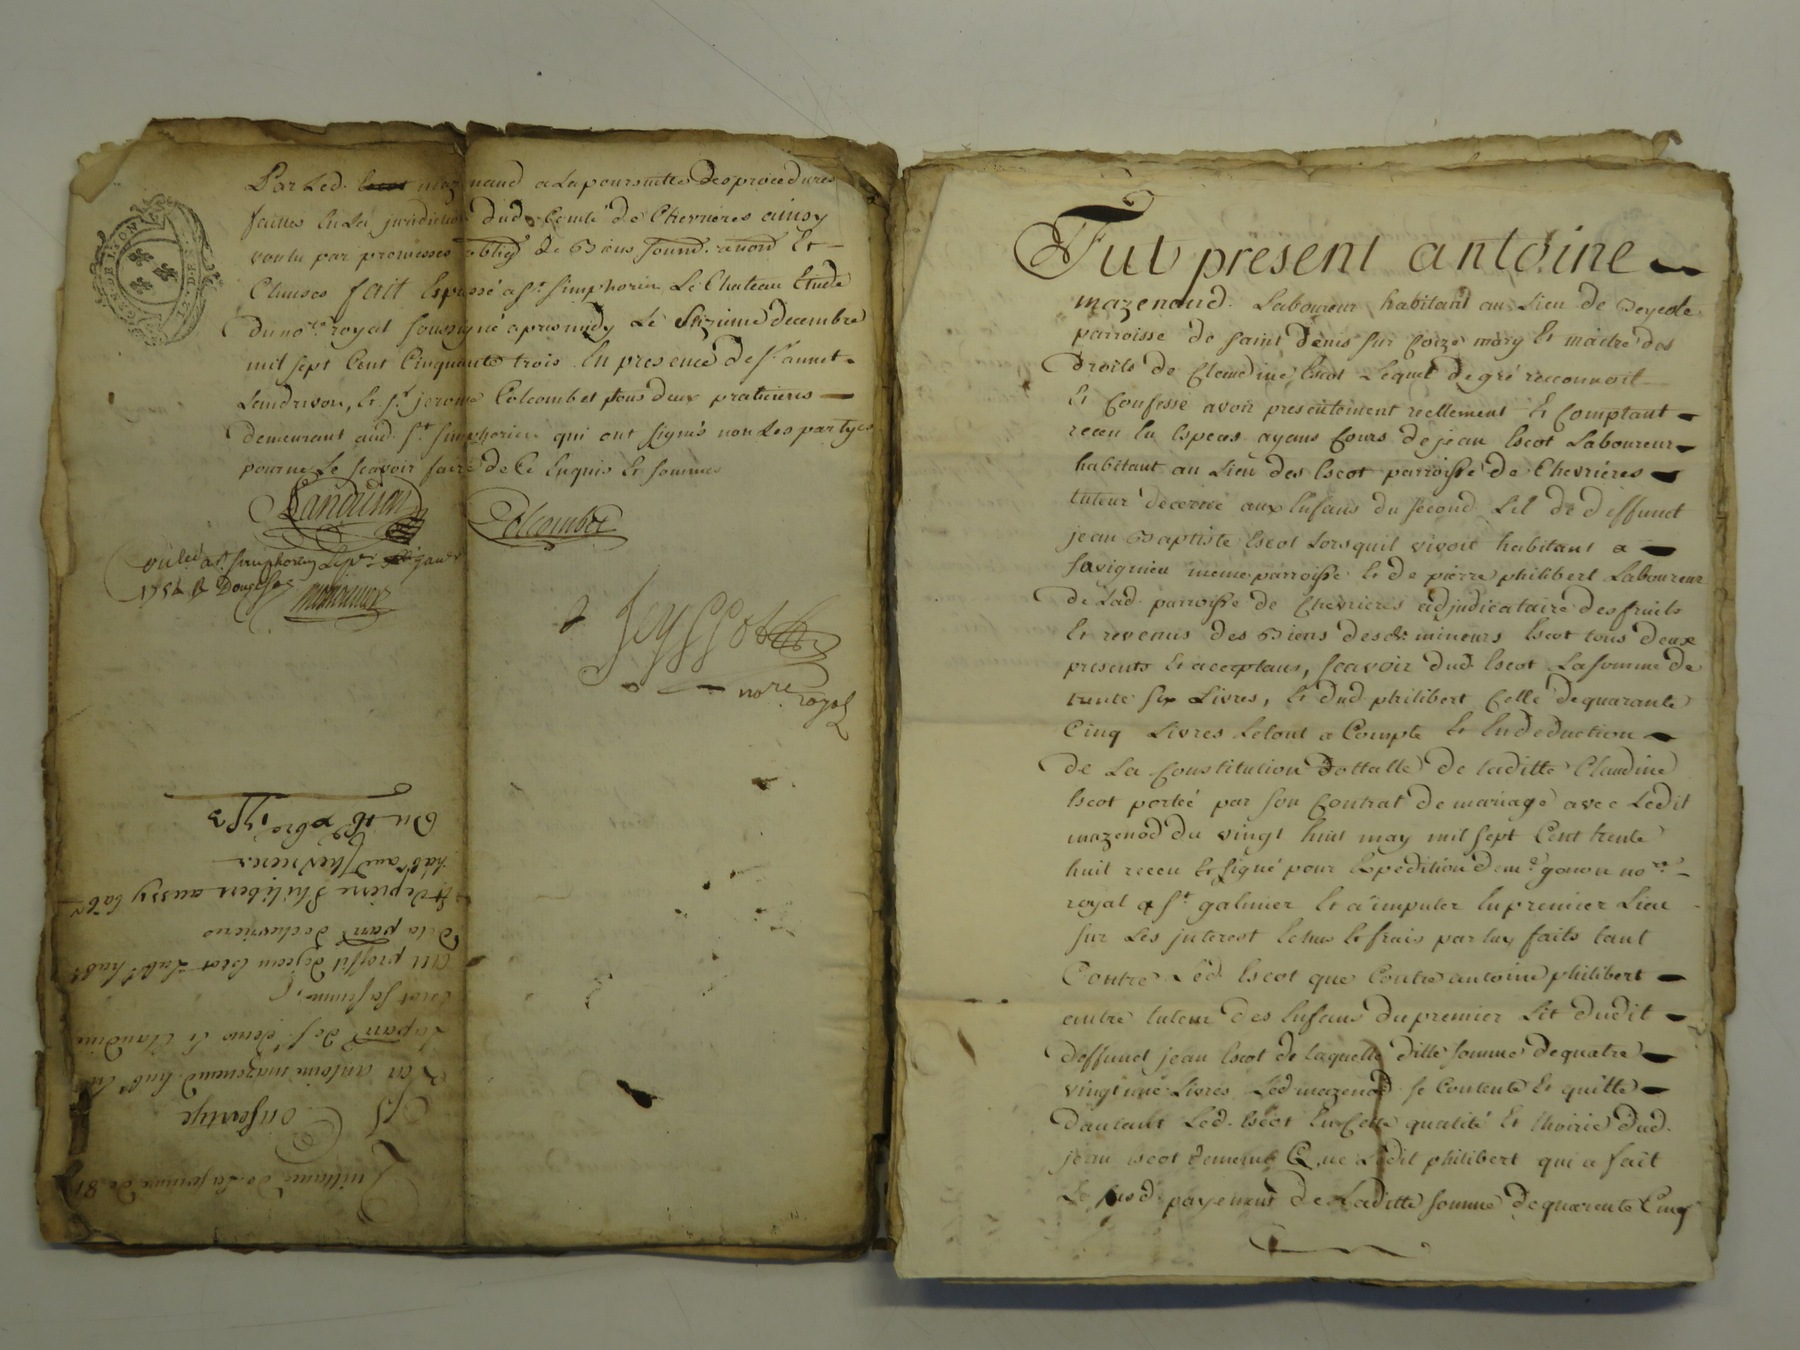 Par led. mazenaud a la poursuitte des procedures
faittes en la juridiction dud. Comté de Chevrieres ainsy
voulu par promesses oblig. de Biens soum. renon Et
Clauses fait Et passé a St. Simphorien Le Chateau Etude
du no.re royal soussigné apres midy Le Seizieme decembre
mil sept Cent Cinquante trois En presence de sr. annet
Landrivon, Et sr. jerome Colcombet tous deux praticiens
demeurant aud. St. Simphorien qui ont signés non Les partyes
pour ne Le scavoir faire de Ce Enquis Et sommes
Landrivon
Colcombet
St. Simphorien janv
1754 R Douze s
nore. royal
Quittance de La somme de 81
Par antoine mazenaud hab.t
La parr de St. denis Et Claudine
Escot sa femme
Au proffit de jean Escot Lab.r hab.t
de la parr de chevrieres
Et de pierre Philibert aussy lab.r
hab.t aud Chevrieres
Du 16 Xbre 1753
Fut present antoine
mazenaud. Laboureur habitant au Lieu de
parroisse de saint denis sur Coize mary Et maitre des
droits de Claudine Escot Lequel de gré reconnoit
Et Confesse avoir presentement reellement Et Comptant
receu En Especes ayans Cours de jean Escot Laboureur
habitant au Lieu des Escot parroisse de Chevrieres
tuteur decerné aux Enfans du second Lit de deffunct
jean Baptiste Escot Lorsquil vivoit habitant a
Savignieu meme parroisse Et de pierre philibert Laboureur
de Lad. parroisse de Chevrieres adjudicataire des fruits
Et revenus des Biens desd. mineurs Escot tous deux
presents Et acceptans, scavoir dud. Escot La somme de
trente six Livres, Et dud philibert Celle de quarante
Cinq Livres Le tout a Compte Et En deduction
de La Constitution dottalle de laditte Claudine
Escot portée par son Contrat de mariage avec Ledit
mazenod du vingt huit may mil sept Cent trente
huit receu Et signé pour Expedition de me. gonon no.re
royal a St. galmier Et a imputer En premier Lieu
sur Les interest Echus Et frais par luy faits tant
Contre Led. Escot que Contre antoine philibert
autre tuteur des Enfans du premier Lit dudit
deffunct jean Escot de laquelle ditte somme de quatre
vingt une Livres Led mazenod se Contente Et quitte
dautant Led. Escot En Cette qualité Et Lhoirie dud.
jean Escot dememe Que Ledit philibert qui a fait
Le susd. payement de Laditte somme de quarente Cinq